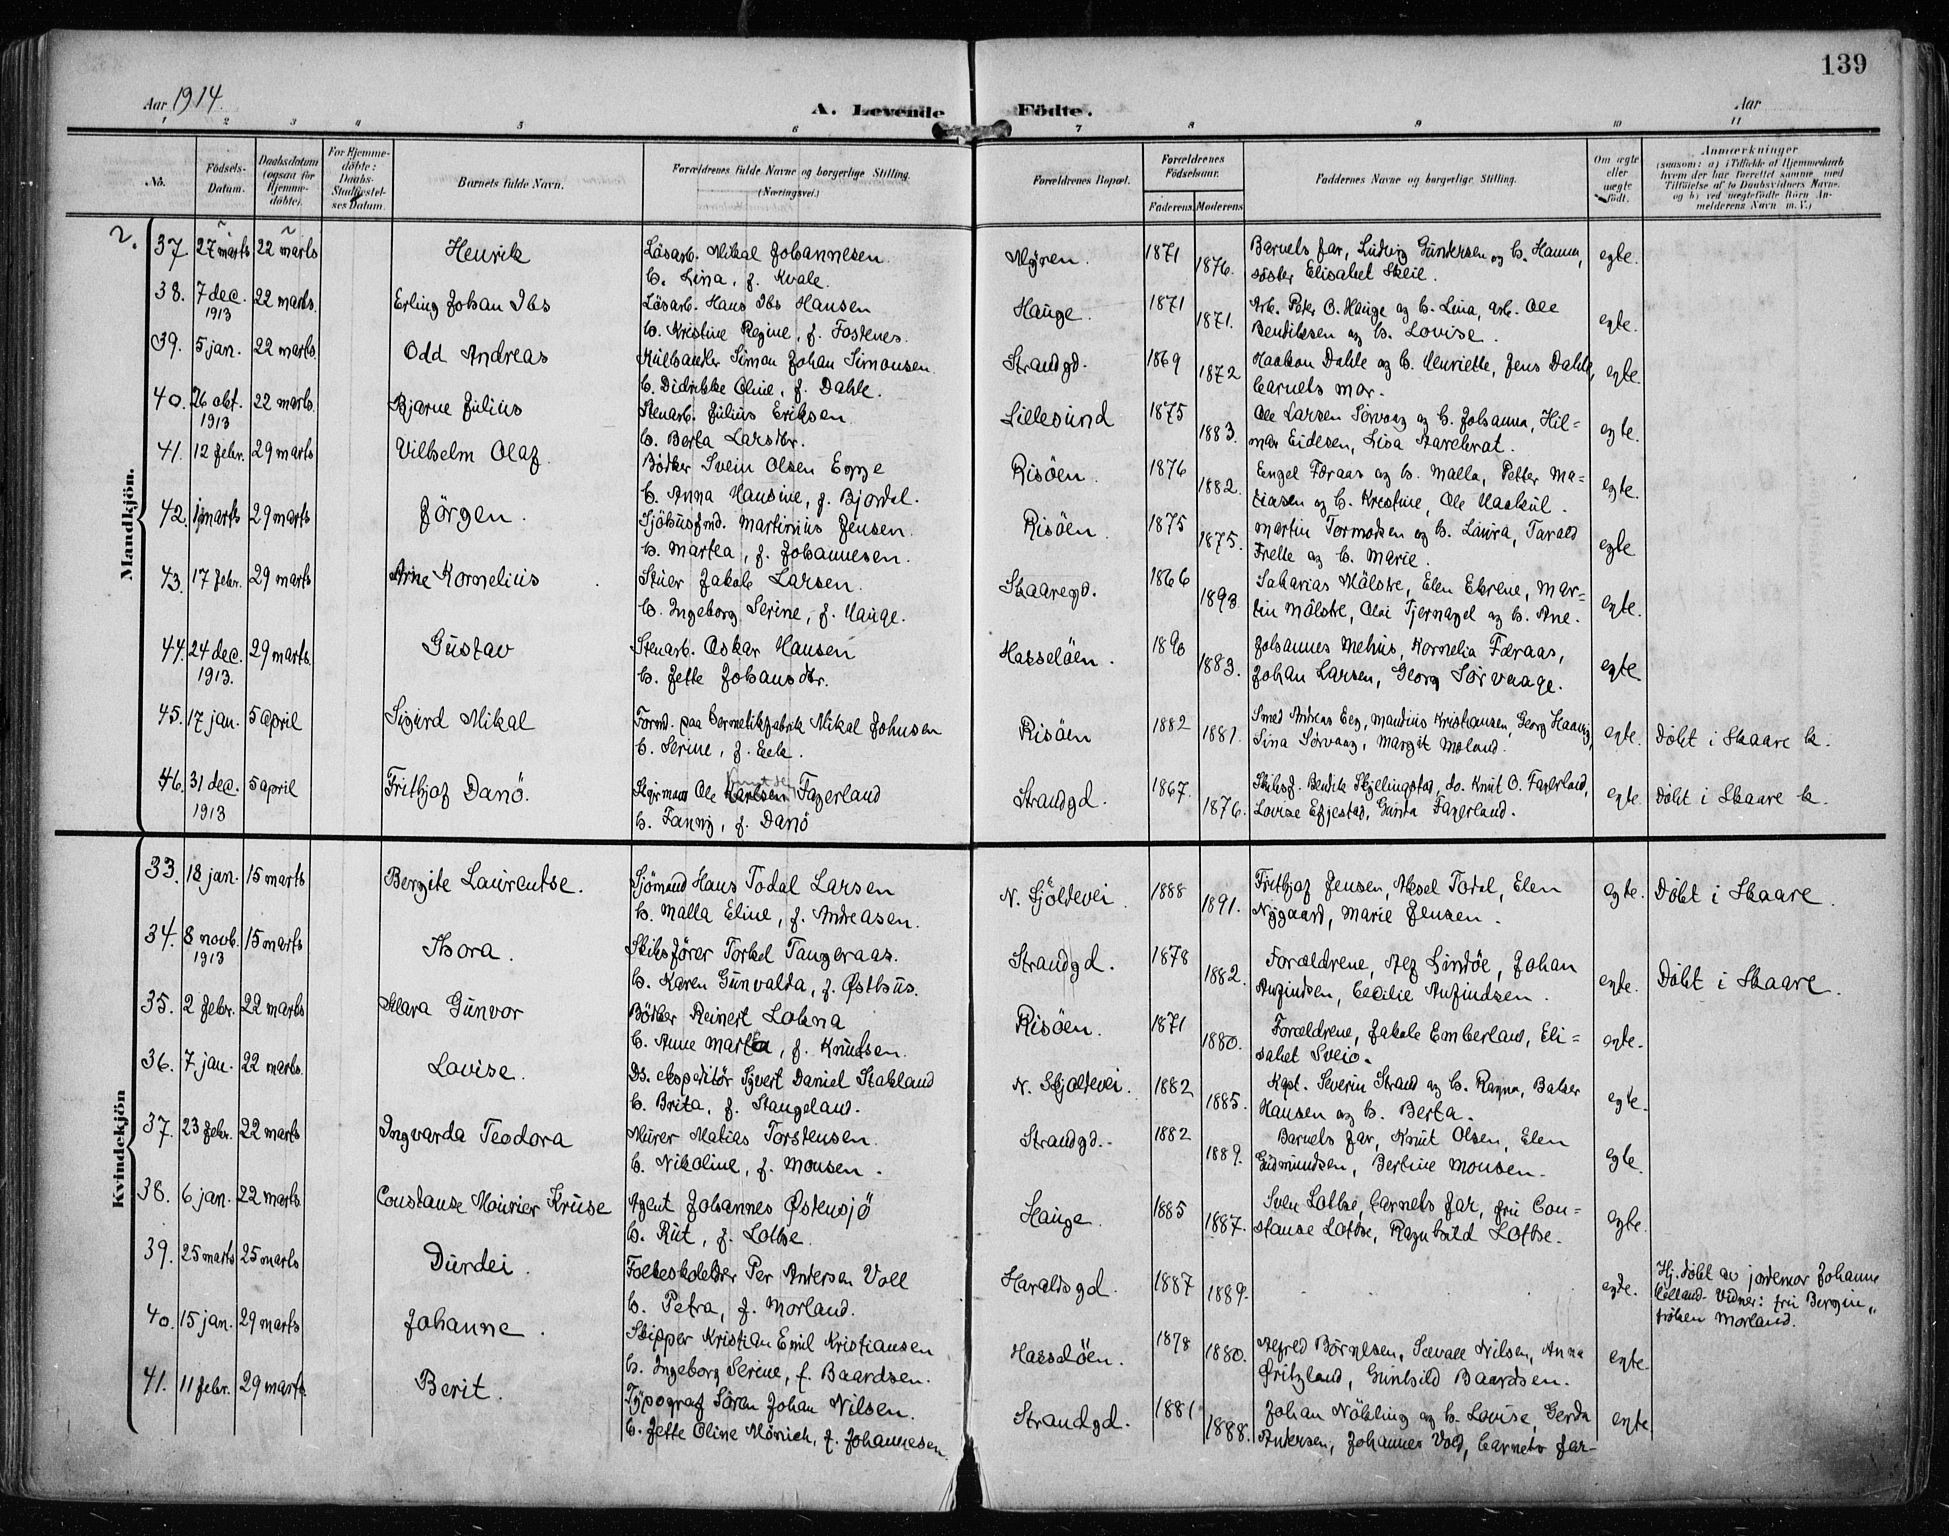 139
Aar 1914.
A. Levende Födte.
Aar
1 2 3 4 5 6 7 8 9 10 11
No.
Födsels-Datum.
Daabsdatum (ogsaa for Hjemme-döbte).
For Hjemme-döbte: Daabs-Stadfæstel-ses Datum.
Barnets fulde Navn.
Forældrenes fulde Navne og borgerlige Stilling. (Næringsvei.)
Forældrenes Bopæl.
Forældrenes Födselsaar.
Faderens Moderens
Faddernes Navne og borgerlige Stilling.
Om ægte eller uægte födt.
Anmærkninger
(saasom: a) i Tilfælde af Hjemmedaab hvem der har forrettet samme, med Tilföielse af to Daabsvidners Navne, og b) ved uægtefödte Börn An-melderens Navn m. V.)
Mandkjön.
2.
37 27 marts 22 marts Henrik Lösarb. Mikal Johannesen Myren. 1871 Barnets far, Ludvig Gundersen og h. Hanna, egte.
h. Lina, f. Kvale. 1876. söster Elisabet Skeie.
38. 7 dec. 1913 22 marts. Erling Johan Ibs Lösarb. Hans Ibs Hansen Hauge. 1871 Arb. Peter O. Hauge og h. Lina, arb. Ole egte.
h. Kristine Regine, f. Fosenes. 1871. Bendiksen og h. Lovise.
39. 5 jan. 22 marts. Odd Andreas Kulhandler Simon Johan Simonsen. Strandgd. 1869 Haakon Dahle og h. Henriette, Jens Dahle, egte.
h. Didrikke Oline, f. Dahle. 1872 barnets mor.
40. 26 okt. 1913 22 marts. Bjarne Julius Stenarb. Julius Eriksen Lillesund 1875 Ole Larsen Sörvaag og h. Johanna, Hil= egte.
h. Berta Larsdtr. 1883. mar Eidesen, Lisa
41. 12 febr. 29 marts Vilhelm Olaf. Bödker Svein Olsen Egge Risöen. 1876 Engel Færaas og h. Malla, Petter Ma= egte.
h. Anna Hansine, f. Bjordal. 1882. tiasen og h. Kristine, Ole
42. 1 marts 29 marts Jörgen. Sjöhusfmd. Martinius Jensen Risöen. 1875 Martin Tormodsen og h. Laura, Tarald egte
h. Martea, f. Johannesen. 1875. Frette og h. Marie.
43. 17 febr. 29 marts Arne Kornelius Stuer Jakob Larsen. Skaaregd. 1866 Sakarias Mölstre, Elen Ebrene, Mar= egte.
h. Ingeborg Serine, f. Hauge. tin Mölstre, Olai Tjernagel og h. Ane.
44. 24 dec. 1913. 29 marts. Gustav Stenarb. Oskar Hansen Hasselöen. 1890 Johannes Mehus, Kornelia Færaas, egte
h. Jette Johansdtr. 1883. Johan Larsen, Georg Sörvaage.
45. 17 jan. 5 april Sigurd Mikal Formd. paa hermetikfabrik Mikal Johnsen Risöen 1882 Smed Andreas Eeg, Maudius Kristiansen, Georg egte. Döbt i Skaare k.
h. Serine, f. 1881. Sina Sörvaag, Margit Moland.
46. 31 dec. 1913 5 april Frithjof Danö. Styrmand Ole Karlsen Knutsen Fagerland Strandgd. 1867. Skibsf. Bendik Skjellingstad, do. Knut O. Fagerland, egte. Döbt i Skaare k.
h. Fanny, f. Danö 1876. Lovise Gunda Fagerland.
Kvindekjön
33. 18 jan. 15 marts Bergite Laurentse. Sjömand Hans Todal Larsen N. Sjöldevei. 1888 Frithjof Jensen, Aksel Todal, Elen egte. Döbt i Skaare.
h. Malla Eline, f. Andreasen. 1891. Nygaard, Marie Jensen.
34. 8 novb. 1913 15 marts Thora. Skibsförer Torkel Tangeraas. Strandgd. 1878 Forældrene, Alf Lindöe, Johan egte. Döbt i Skaare.
h. Karen Gunvalda, f. Østhus. 1882. Anfindsen, Cecilie Anfindsen.
35. 2 febr. 22 marts Klara Gunvor Bödker Reinert Lokna Risöen. 1871 Forældrene, Jakob Emberland, Eli= egte.
h. Anne Martea, f. Knudsen. 1880. sabet Sveio.
36. 7 jan. 22 marts. Lovise. Ds. ekspeditör Sjvert Daniel Stakland N. Skjoldevei. 1882 Kapt. Severin Strand og h. Ragna, Balser egte.
h. Brita, f. Stangeland. 1885. Hansen og h. Berta.
37. 23 febr. 22 marts Ingvarda Teodora Murer Matias Torstensen. Strandgd. 1882 Barnets far, Knut Olsen, Elen egte.
h. Nikoline, f. Monsen. 1889. Gudmundsen, Bertine Monsen.
38. 6 jan. 22 marts Constanse Mourier Kruse Agent Johannes Østensjö Hauge. 1885 Sven Lothe, barnets far, fru Con= egte.
h. Rut, f. Lothe. 1887. stanse Lothe, Ragnhild Lothe.
39. 25 marts 25 marts Durdei. Folkeskolelær Per Andersen Voll Haraldsgd. 1887 egte. Hj. döbt av jordemor Johanne
h. Petra, f. Morland. 1889. Vidner: fru Bergin,
fröken Morland.
40. 15 jan. 29 marts Johanne. Skipper Kristian Emil Kristiansen Hasselöen. 1878 Alfred Börnesen, Sevald Nilsen, Anna egte.
h. Ingeborg Serine, f. Baardsen. 1880. Fritzland, Gunhild Baardsen.
41. 11 febr. 29 marts. Berit. Typograf Sören Johan Nilsen. Strandgd. 1881 Johan Nökling og h. Lovise, Gerda egte
h. Jette Oline Mönich, f. Johannesen 1888. Andersen, Johannes Vold, barnets far-